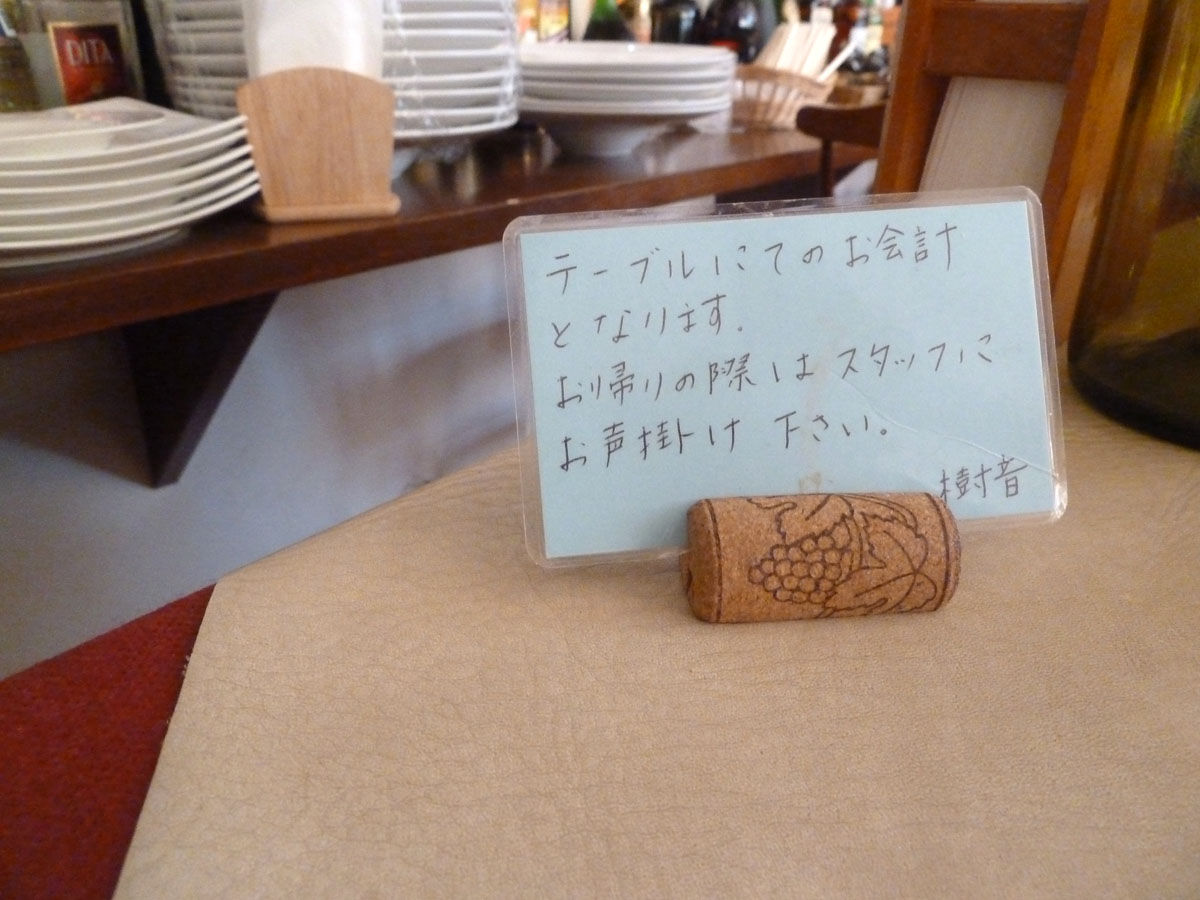 DITA
テーブルにてのお会計
となります.
お帰りの際はスタッフに
お声掛け下さい。
樹音